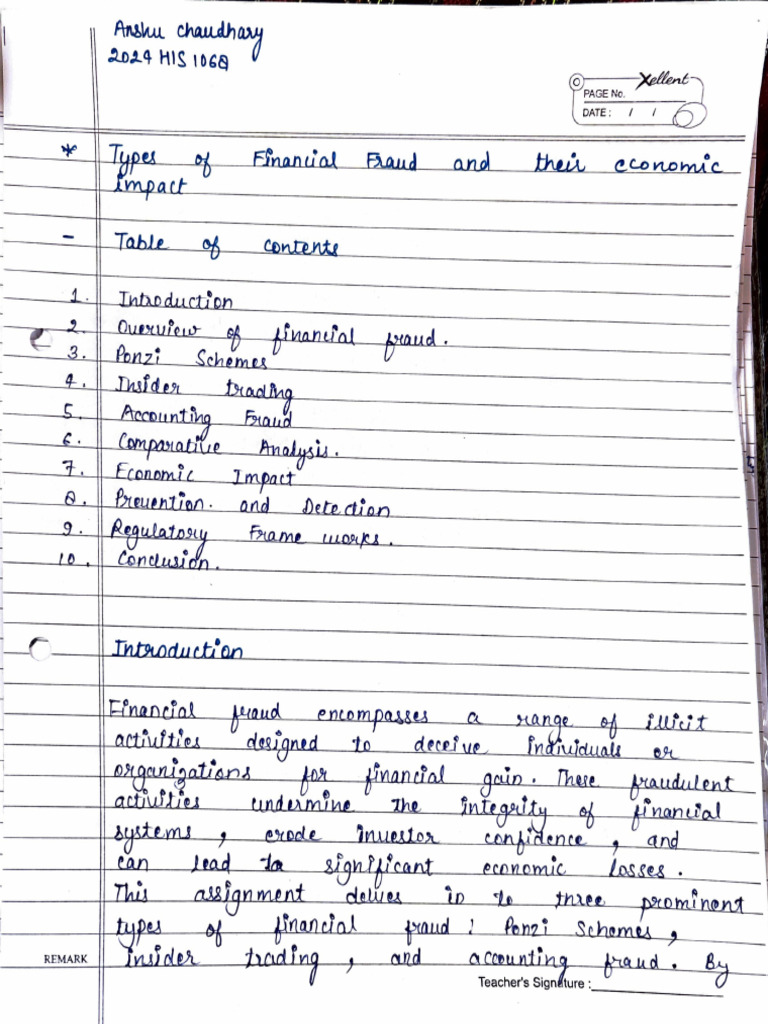 Anshu chaudhary
2024 HIS 1068
Xellent
PAGE No.
DATE : / /
* Types of Financial Fraud and their economic
impact
- Table of contents
1. Introduction
2. Overview of financial fraud.
3. Ponzi Schemes
4. Insider trading
5. Accounting Fraud
6. Comparative Analysis.
7. Economic Impact
8. Prevention. and Detection
9. Regulatory Frame works.
10. Conclusion.
Introduction
Financial fraud encompasses a range of illicit
activities designed to deceive individuals or
organizations for financial gain. These fraudulent
activities undermine the integrity of financial
systems, erode investor confidence, and
can lead to significant economic losses.
This assignment delves in to three prominent
types of financial fraud : Ponzi Schemes,
insider trading, and accounting fraud. By
REMARK
Teacher's Signature :